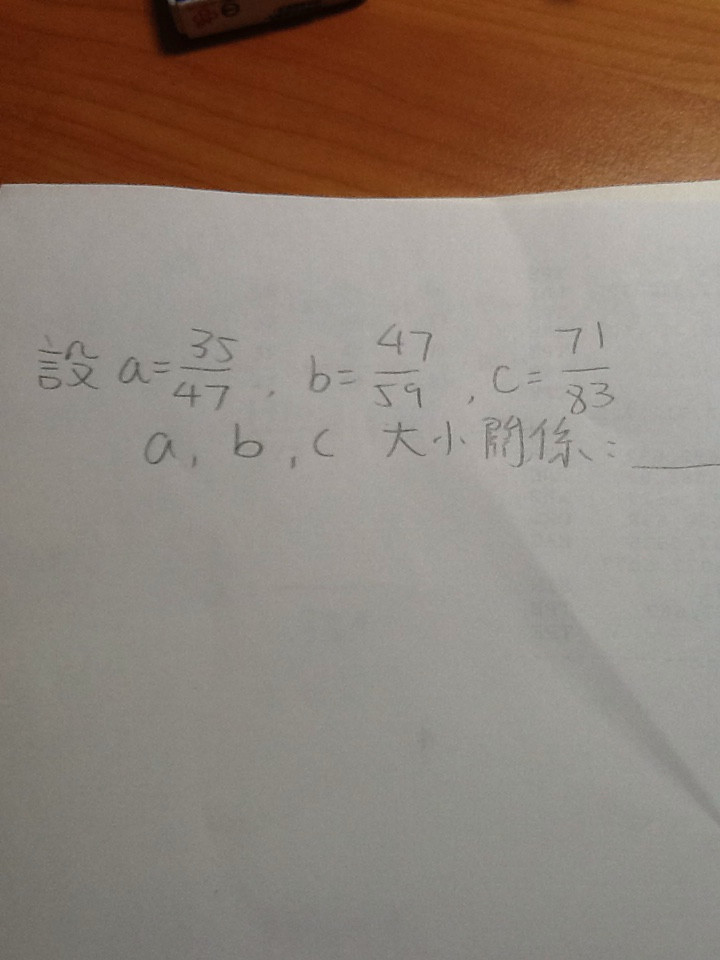 設 a = 35/47 , b = 47/59 , c = 71/83
a , b , c 大小關係 : ____